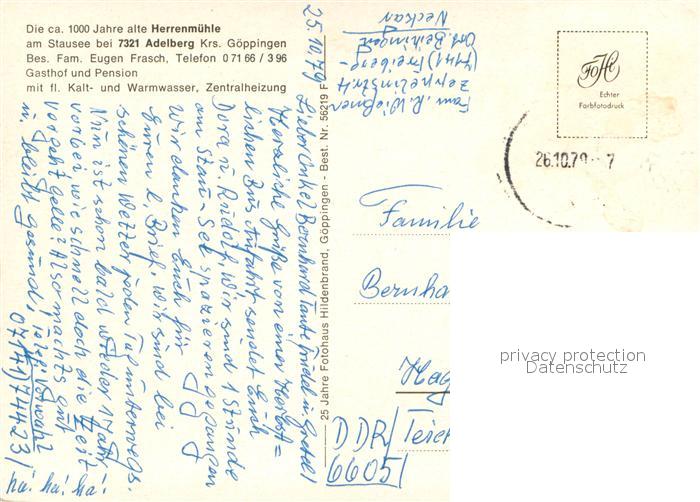 Die ca. 1000 Jahre alte Herrenmühle
am Stausee bei 7321 Adelberg Krs. Göppingen
Bes. Fam. Eugen Frasch, Telefon 0 71 66 / 3 96
Gasthof und Pension
mit fl. Kalt- und Warmwasser, Zentralheizung
25.10.79
Lieber Onkel Bernhard Tante Friedel u Gretel
Herzliche Grüße von einer Herbst=
lichen Bus Ausfahrt, sendet Euch
Dora u Rudolf, wir sind 1 Stunde
am Stau-See spazieren gegangen
Wir danken Euch für
Euren l. Brief. Wir sind bei
schönen Wetter jeden Tag unterwegs.
Nun ist schon bald wieder 1 Jahr
vorbei wie schnell doch die Zeit
vergeht gelle? Also machts gut
u. bleibt gesund,
Vorwahl
07141/74423/
ha! ha! ha!
25 Jahre Fotohaus Hildenbrand, Göppingen - Best. Nr. 56219 F
Fam. R. Wießner
Zeppelinstr. 4
(7141) Freiberg-
Ort. Beihingen
Neckar
FoHi
Echter
Farbfotodruck
26.10.79 - 7
Familie
Bernha
Hag
DDR/Teich
6605/
privacy protection
Datenschutz